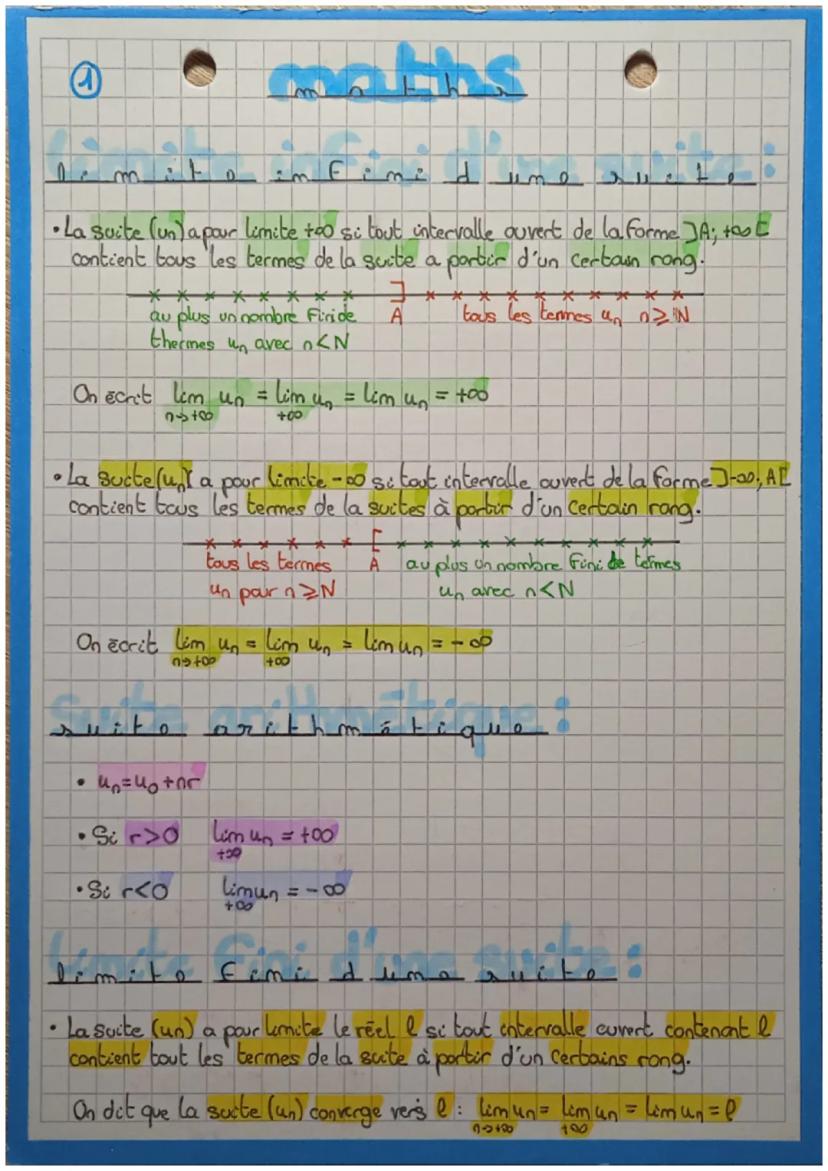 1
maths
limite infini d'une suite :
• La suite (un) a pour limite +∞ si tout intervalle ouvert de la forme ]A; +∞[
contient tous les termes de la suite a partir d'un certain rang.
au plus un nombre fini de A tous les termes un n≥N
thermes un avec n<N
On écrit lim un = lim un = lim un = +∞
n→+∞ +∞
• La suite (un) a pour limite -∞ si tout intervalle ouvert de la forme ]-∞; A[
contient tous les termes de la suites à partir d'un certain rang.
tous les termes A au plus un nombre fini de termes
un pour n≥N un avec n<N
On écrit lim un = lim un = lim un = -∞
n→+∞ +∞
Suite arithmétique :
• un = u0 + nr
• Si r>0 lim un = +∞
+∞
• Si r<0 lim un = -∞
+∞
limite fini d'une suite :
• La suite (un) a pour limite le réel l si tout intervalle ouvert contenant l
contient tout les termes de la suite à partir d'un certains rang.
On dit que la suite (un) converge vers l : lim un = lim un = lim un = l
n→+∞ +∞